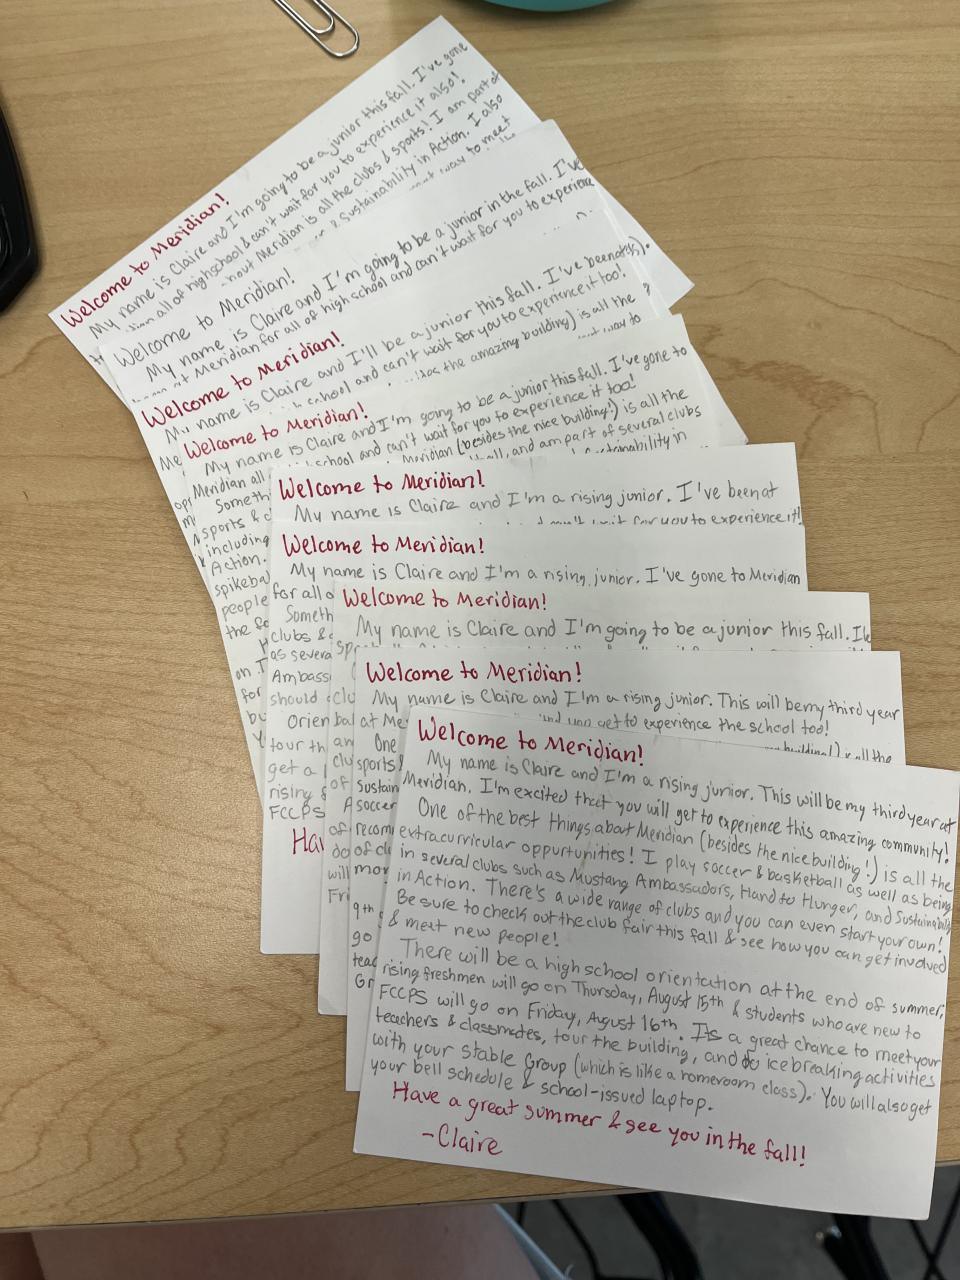 Welcome to Meridian!
My name is Claire and I'm going to be a junior this fall. I've gone
all of highschool & can't wait for you to experience it also!
Meridian is all the clubs & sports! I am part of
Sustainability in Action. I also
way to meet
Welcome to Meridian!
My name is Claire and I'm going to be a junior in the fall. I've
at Meridian for all of high school and can't wait for you to experience
Welcome to Meridian!
My name is Claire and I'll be a junior this fall. I've been at
school and can't wait for you to experience it too!
the amazing building) is all the
way to
Welcome to Meridian!
My name is Claire and I'm going to be a junior this fall. I've gone to
Meridian all school and can't wait for you to experience it too!
Someth Meridian (besides the nice building!) is all the
sports & c and am part of several clubs
including
Action.
spikeba
people
the
on
for
Welcome to Meridian!
My name is Claire and I'm a rising junior. I've been at
wait for you to experience it!
Welcome to Meridian!
My name is Claire and I'm a rising junior. I've gone to Meridian
for all o
Someth
clubs &
as severa
Ambass
should
Orien
tour th
get a
rising
FCCPS
Hav
Welcome to Meridian!
My name is Claire and I'm going to be a junior this fall. I've
Welcome to Meridian!
My name is Claire and I'm a rising junior. This will be my third year
at Me and you get to experience the school too!
One building!) is all the
sports!
sustain
soccer
recom
of cl
mor
9th
go
teac
Gr
Welcome to Meridian!
My name is Claire and I'm a rising junior. This will be my third year at
Meridian. I'm excited that you will get to experience this amazing community!
One of the best things about Meridian (besides the nice building!) is all the
extracurricular oppurtunities! I play soccer & basketball as well as being
in several clubs such as Mustang Ambassadors, Hand to Hunger, and Sustainability
in Action. There's a wide range of clubs and you can even start your own!
Be sure to check out the club fair this fall & see how you can get involved
& meet new people!
There will be a high school orientation at the end of summer;
rising freshmen will go on Thursday, August 15th & students who are new to
FCCPS will go on Friday, August 16th. Its a great chance to meet your
teachers & classmates, tour the building, and do icebreaking activities
with your Stable Group (which is like a homeroom class). You will also get
your bell schedule & school-issued laptop.
Have a great summer & see you in the fall!
-Claire